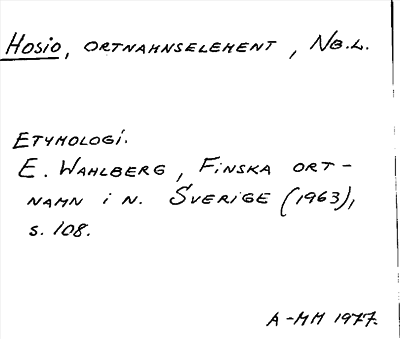 Hosio, ORTNAMNSELEMENT, NB.L.
ETYMOLOGI.
E. WAHLBERG, FINSKA ORT-
NAMN I N. SVERIGE (1963),
S. 108.
A-MM 1977.